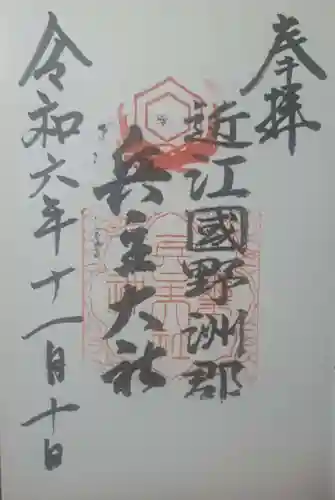 奉拝
近江國野洲郡
兵主大社
令和六年十一月十日